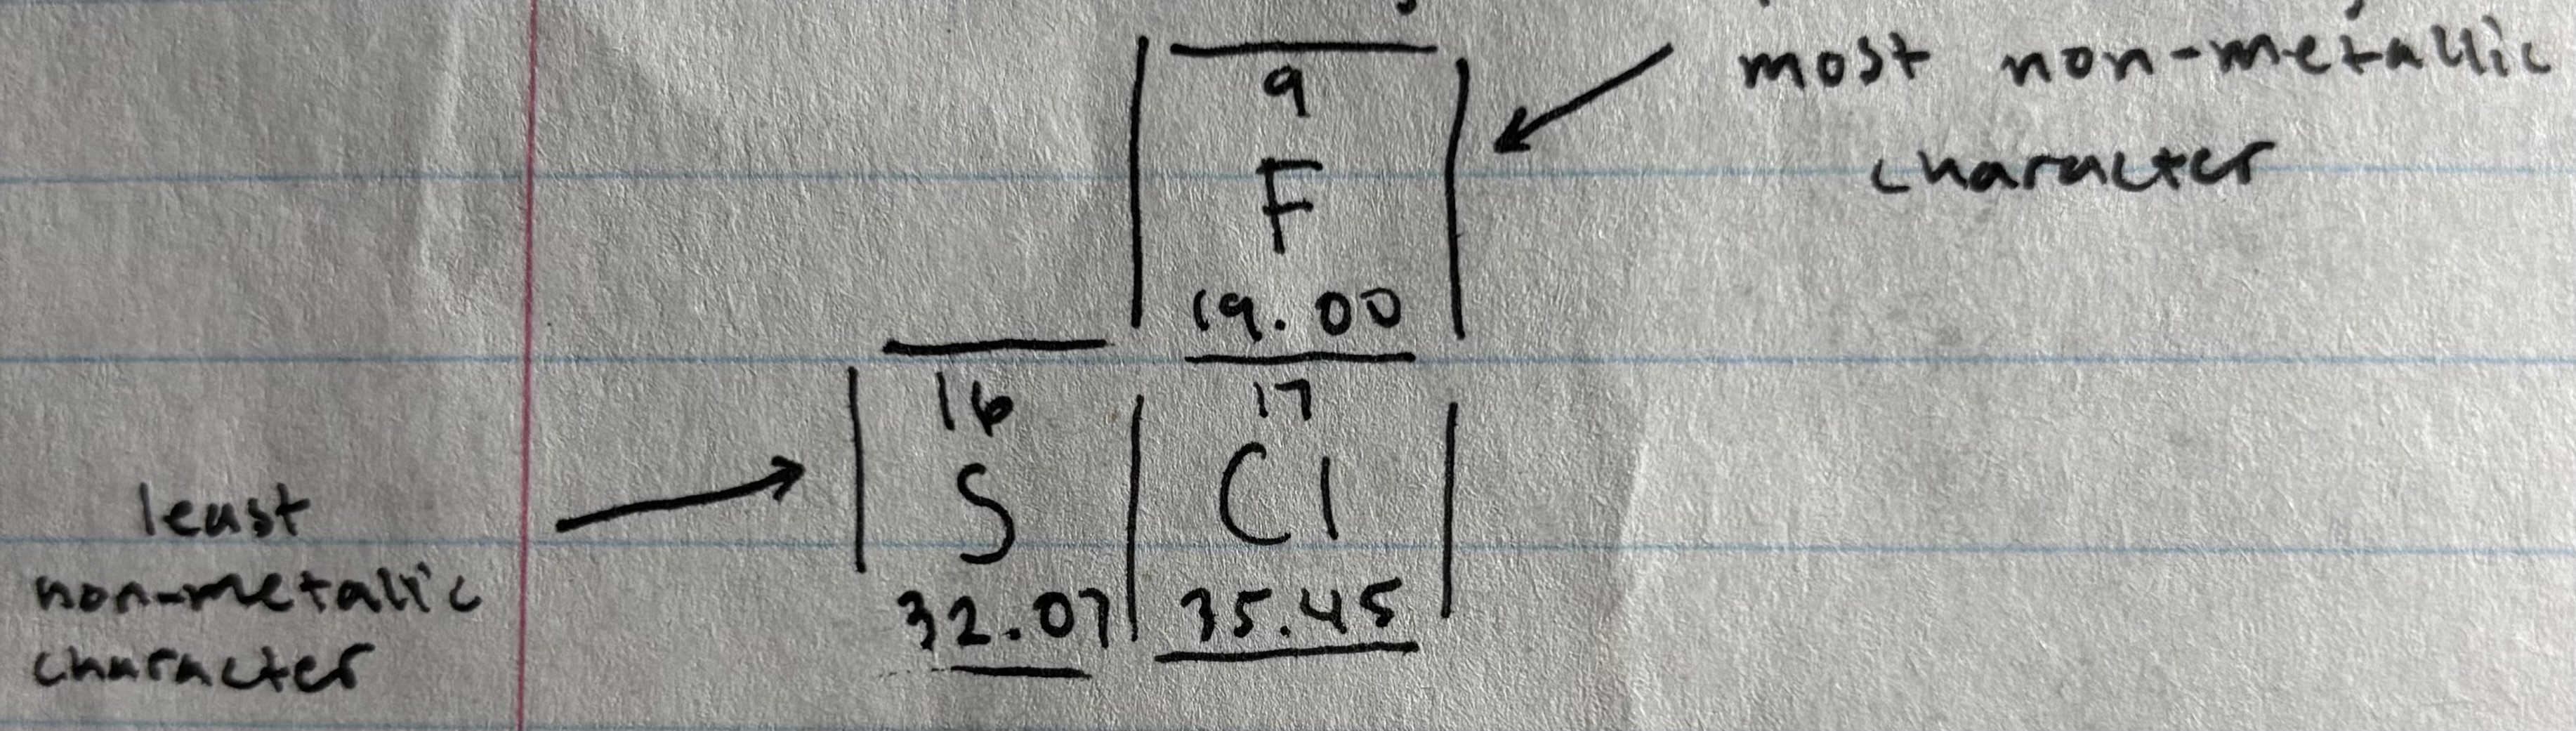 most non-metallic
character
9
F
19.00
16
S
32.07
17
Cl
35.45
least
non-metallic
character